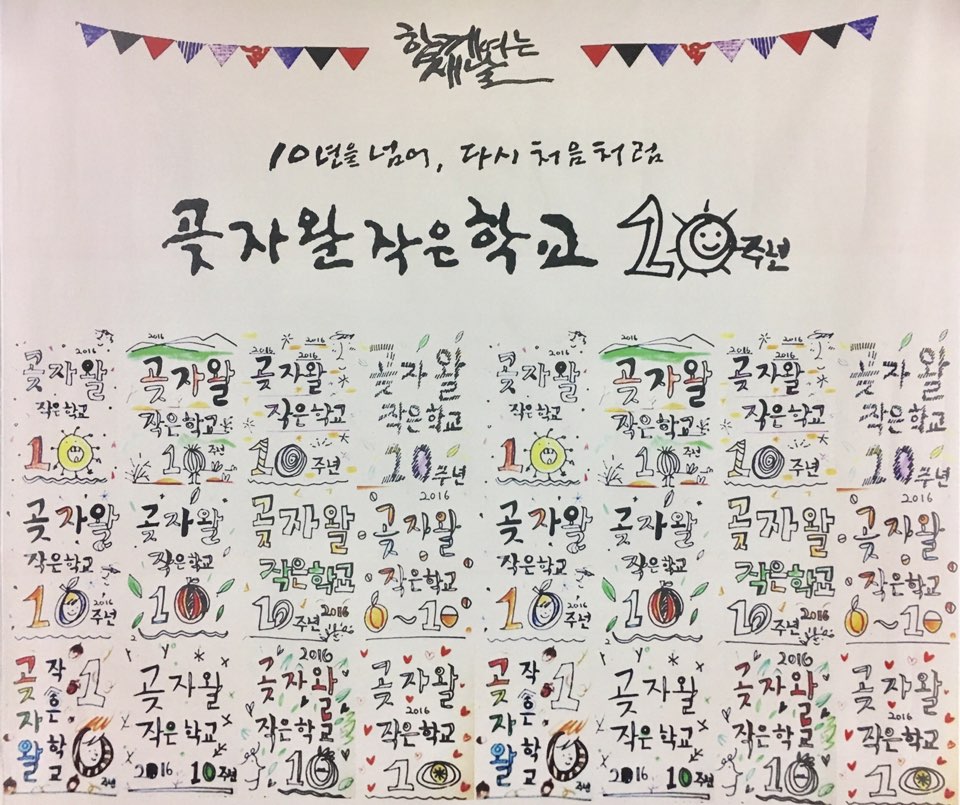 함께
10년을 넘어, 다시 처음처럼
곶자왈 작은학교 10주년
2016
곶자왈
작은학교
10
2016
곶자왈
작은학교
10주년
2016 2016
곶자왈
작은학교
10주년
곶자왈
작은학교
10주년
2016
곶자왈
작은학교
10
2016
곶자왈
작은학교
10주년
2016 2016
곶자왈
작은학교
10주년
곶자왈
작은학교
10주년
곶자왈
작은학교
10 2016 주년
곶자왈
작은학교
10
곶자왈
작은학교
10주년 2016
2016
곶자왈
작은학교
0~10
곶자왈
작은학교
10 2016 주년
곶자왈
작은학교
10
곶자왈
작은학교
10주년 2016
2016
곶자왈
작은학교
0~10
곶자왈
작은학교
10주년
곶자왈
작은학교
2016 10주년
2016
곶자왈
작은학교
10
곶자왈
2016
작은학교
10
곶자왈
작은학교
10주년
곶자왈
작은학교
2016 10주년
2016
곶자왈
작은학교
10
곶자왈
2016
작은학교
10